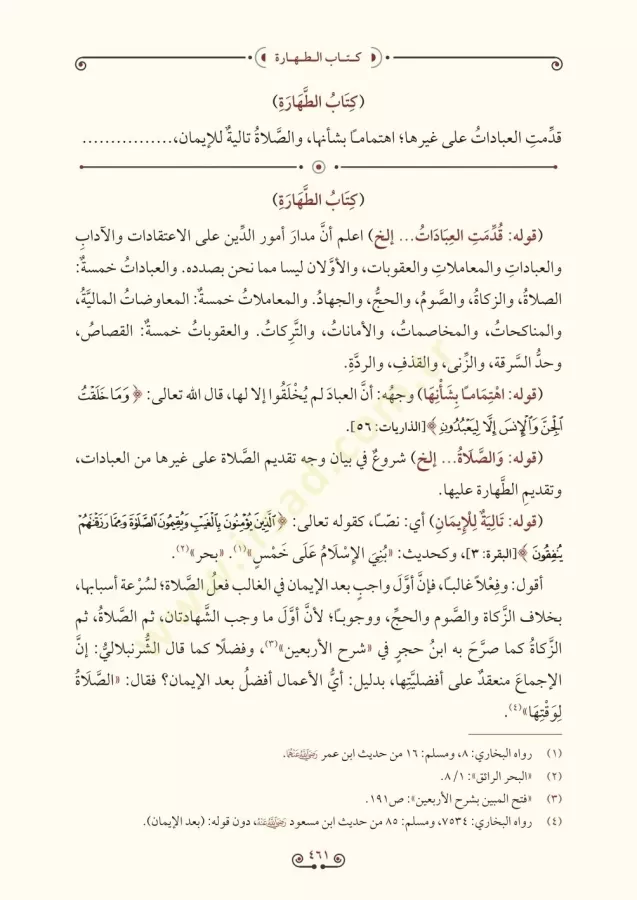 كتاب الطهارة
(كِتَابُ الطَّهَارَةِ)
قدِّمتِ العباداتُ على غيرها؛ اهتمامـًا بشأنها، والصَّلاةُ تاليةٌ للإيمان،................
(كِتَابُ الطَّهَارَةِ)
(قوله: قُدِّمَتِ العِبَادَاتُ... إلخ) اعلم أنَّ مدارَ أمور الدِّين على الاعتقادات والآدابِ
والعباداتِ والمعاملاتِ والعقوبات، والأوَّلان ليسا مما نحن بصدده. والعباداتُ خمسةٌ:
الصلاةُ، والزكاةُ، والصَّومُ، والحجُّ، والجهادُ. والمعاملاتُ خمسةٌ: المعاوضاتُ الماليَّةُ،
والمناكحاتُ، والمخاصماتُ، والأماناتُ، والتَّرِكاتُ. والعقوباتُ خمسةٌ: القصاصُ،
وحدُّ السَّرقة، والزِّنى، والقذفِ، والردَّةِ.
(قوله: اهْتِمَامـًا بِشَأْنِهَا) وجهُه: أنَّ العبادَ لم يُخْلَقُوا إلا لها، قال الله تعالى: ﴿ وَمَا خَلَقْتُ
الْجِنَّ وَالْإِنسَ إِلَّا لِيَعْبُدُونِ ﴾[الذاريات: ٥٦].
(قوله: وَالصَّلَاةُ... إلخ) شروعٌ في بيان وجه تقديم الصَّلاة على غيرها من العبادات،
وتقديمِ الطَّهارة عليها.
(قوله: تَالِيَةٌ لِلْإِيمَانِ) أي: نصّـًا، كقوله تعالى: ﴿الَّذِينَ يُؤْمِنُونَ بِالْغَيْبِ وَيُقِيمُونَ الصَّلَاةَ وَمِمَّا رَزَقْنَاهُمْ
يُنفِقُونَ ﴾[البقرة: ٣]، وكحديث: «بُنِيَ الإِسْلَامُ عَلَى خَمْسٍ»(١). «بحر»(٢).
أقول: وفِعْلاً غالبـًا، فإنَّ أوَّلَ واجبٍ بعد الإيمان في الغالب فعلُ الصَّلاة؛ لسُرْعة أسبابها،
بخلاف الزَّكاة والصَّوم والحجِّ، ووجوبـًا؛ لأنَّ أوَّلَ ما وجب الشَّهادتان، ثم الصَّلاةُ، ثم
الزَّكاةُ كما صرَّحَ به ابنُ حجرٍ في «شرح الأربعين»(٣)، وفضلًا كما قال الشُّرنبلاليُّ: إنَّ
الإجماعَ منعقدٌ على أفضليَّتِها، بدليل: أيُّ الأعمال أفضلُ بعد الإيمان؟ فقال: «الصَّلَاةُ
لِوَقْتِهَا»(٤).
(١) رواه البخاري: ٨، ومسلم: ١٦ من حديث ابن عمر رضي الله عنهما.
(٢) «البحر الرائق»: ١/ ٨.
(٣) «فتح المبين بشرح الأربعين»: ص١٩١.
(٤) رواه البخاري: ٧٥٣٤، ومسلم: ٨٥ من حديث ابن مسعود رضي الله عنه، دون قوله: (بعد الإيمان).
٤٦١